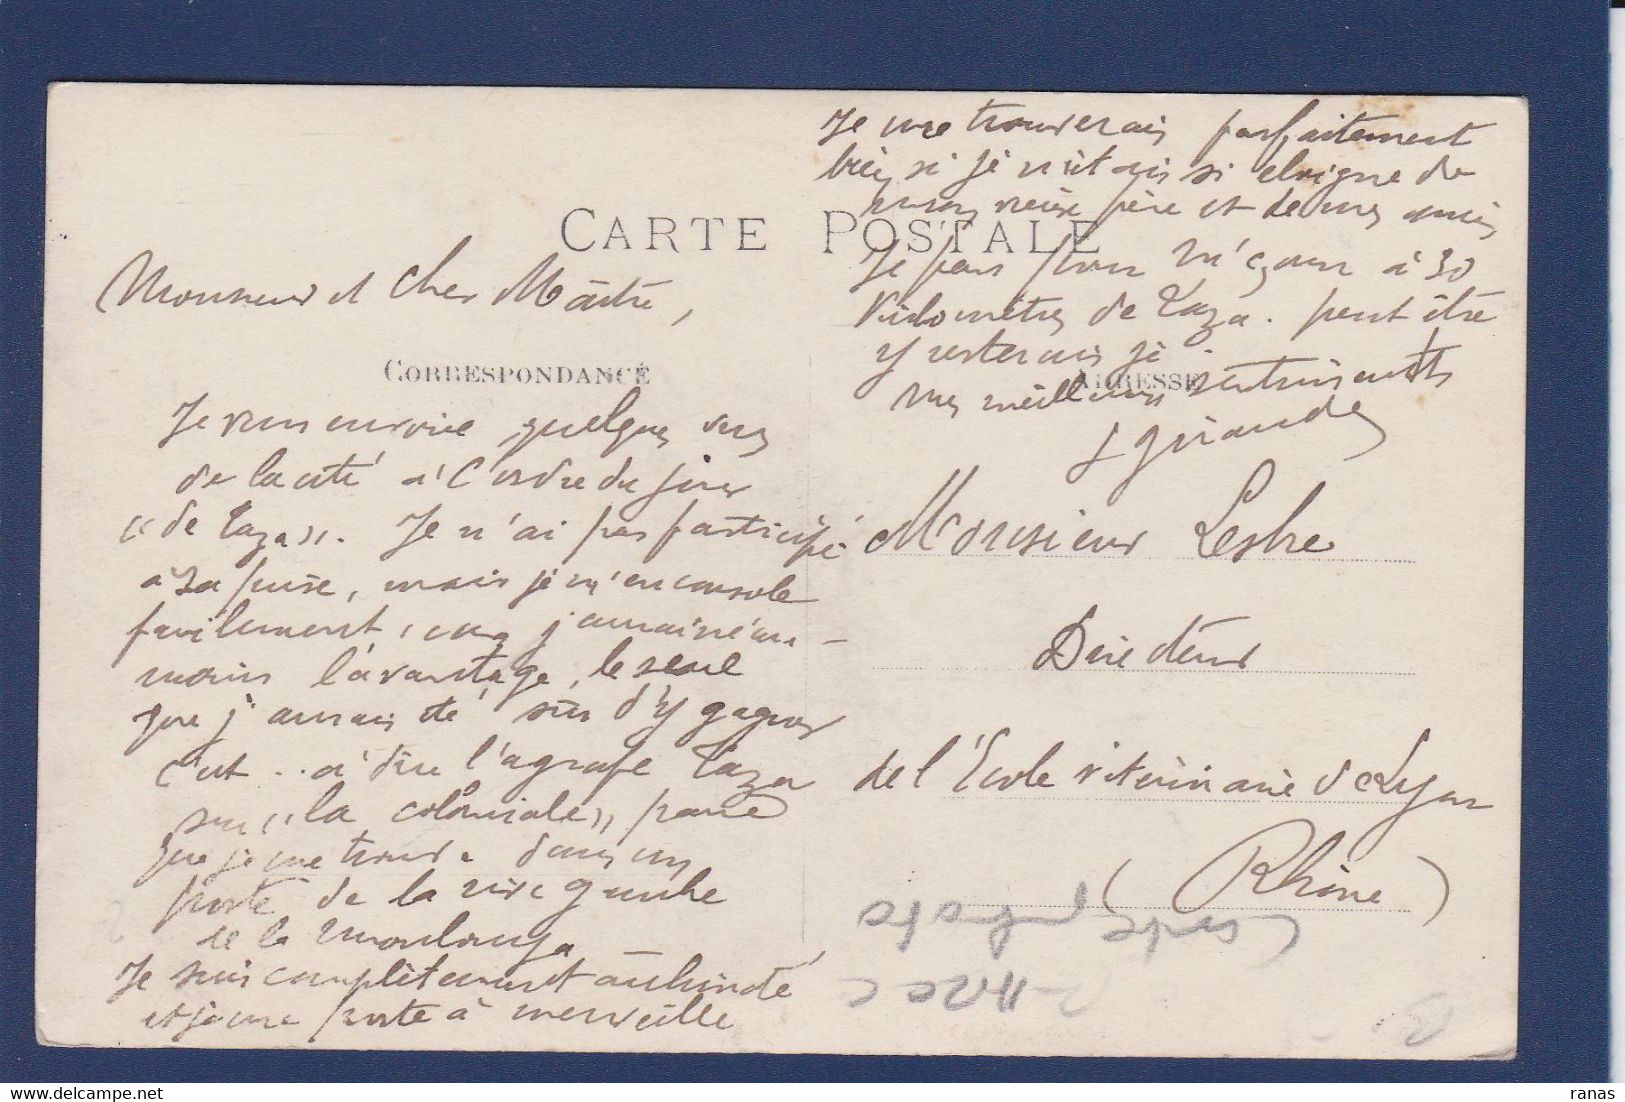 CARTE POSTALE
Monsieur et cher Maître,
CORRESPONDANCE
Je vous envoie quelques vues
de la cité à l'ordre du jour
"de Taza". Je n'ai pas participé
à sa prise, mais je m'en console
facilement, car j'aurai néan-
moins l'avantage, le seul
que j'aurais été sûr d'y gagner
c'est .. à dire l'agrafe Taza
sur "la coloniale" parce
que je me trouve dans un
poste de la rive gauche
de la Moulouya
Je suis complètement acclimaté
et je me porte à merveille
Je me trouverais parfaitement
bien si je n'étais si éloigné de
mon vieux père et de mes amis
Je pars pour M'çoun à 30
kilomètres de Taza. peut être
y resterais je.
mes meilleurs sentiments
ADRESSE
Monsieur Lesbre
Directeur
de l'Ecole vétérinaire de Lyon
(Rhône)
ranas